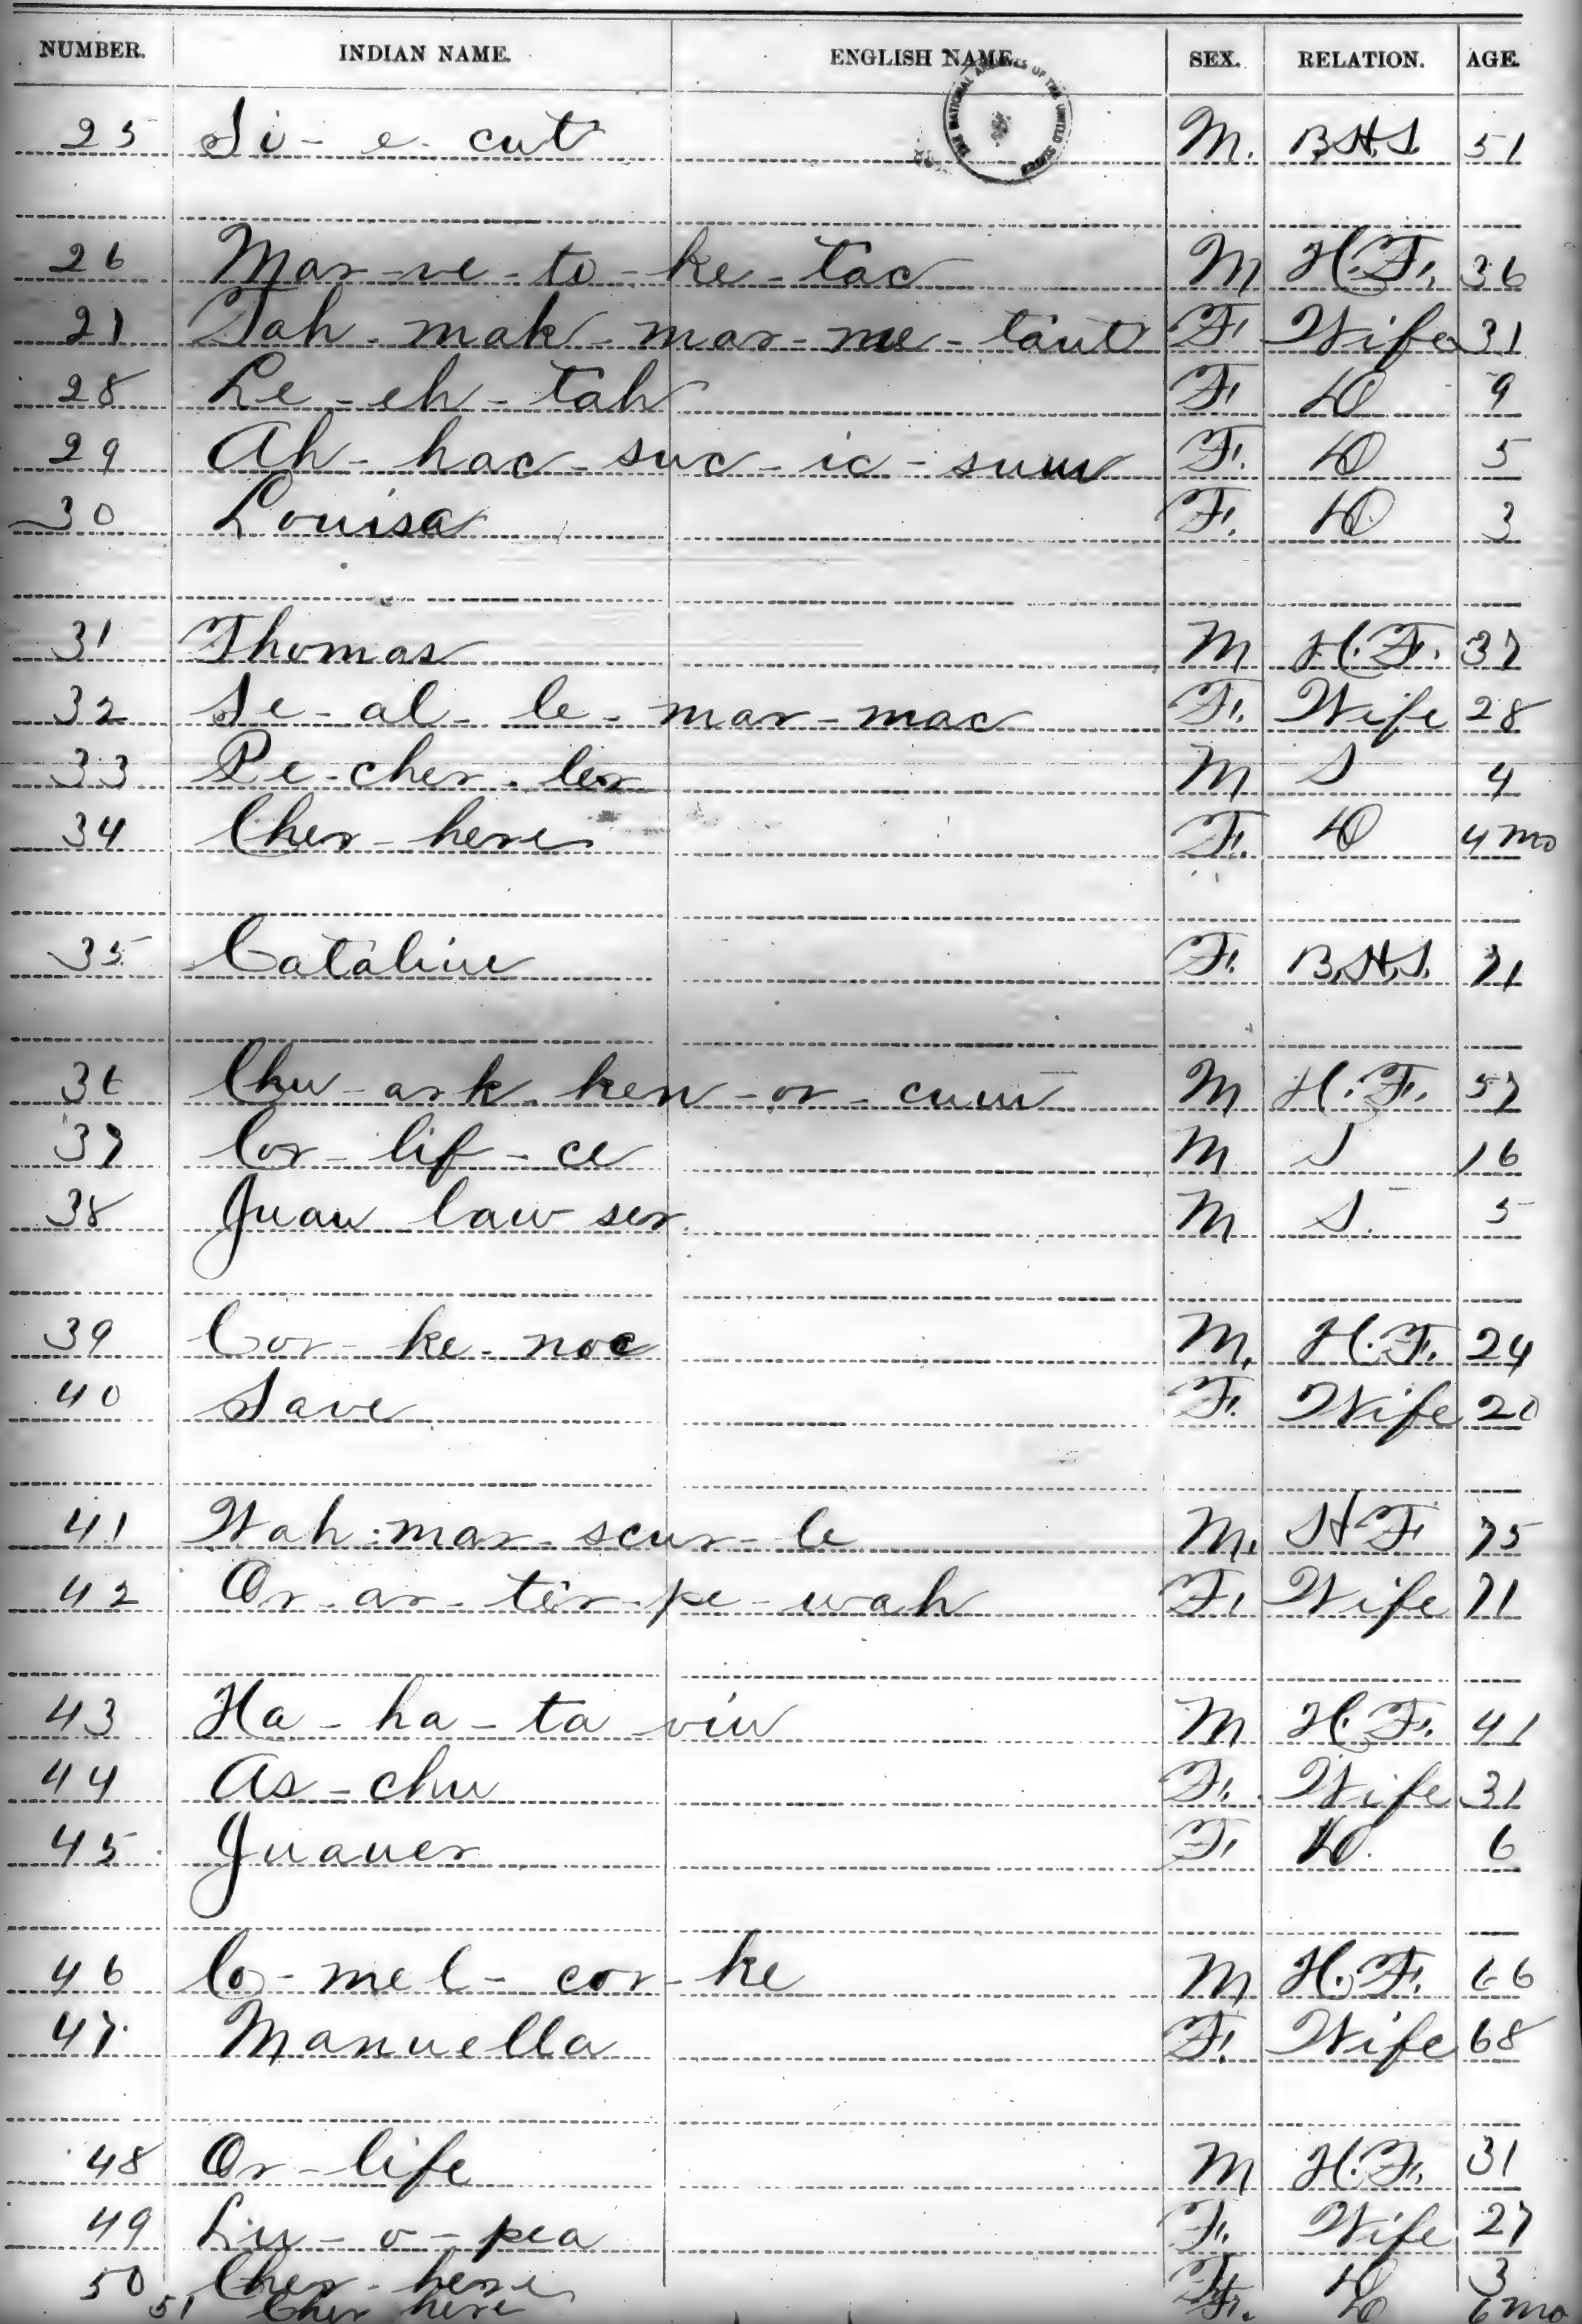 NUMBER. INDIAN NAME. ENGLISH NAME. SEX. RELATION. AGE.
THE NATIONAL ARCHIVES OF THE UNITED STATES
25 Si-e-cut M. B.H.S. 51
26 Mar-ve-to-ke-tac M H.F. 36
27 Tah-mak-mar-me-taut F. Wife 31
28 Le-eh-tah F. D 9
29 Ah-hac-suc-ic-sum F. D 5
30 Louisa F. D 3
31 Thomas M H.F. 37
32 Se-al-le-mar-mac F. Wife 28
33 Pe-cher-ler M S 4
34 Cher-here F. D 4 mo
35 Cataline F. B.H.S. 71
36 Chu-ark-ken-or-cum M H.F. 57
37 Cor-lif-ce M S 16
38 Juan law ser M S. 5
39 Cor-ke-noc M. H.F. 24
40 Save F. Wife 20
41 Wah-mar-scur-le M. H F 75
42 Or-ar-ter-pe-wah F. Wife 71
43 Ha-ha-ta-vin M H.F. 41
44 As-chu F. Wife 31
45 Juaner F. D. 6
46 Co-mel-cor-ke M H.F. 66
47 Manuella F. Wife 68
48 Or-life M H.F. 31
49 Lu-o-pea F. Wife 27
50 Cher-here F. D 3
51 Cher here F. D 6 mo